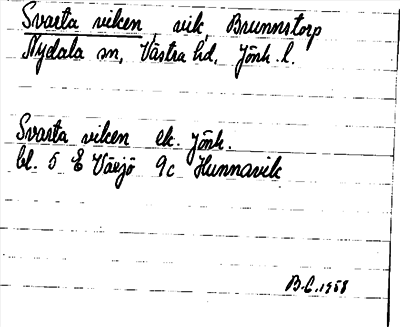 Svarta viken, vik, Brunnstorp
Nydala sn, Västra hd, Jönk. l.
Svarta viken ek. Jönk.
bl. 5 E Växjö 9c Hunnavik
B.C. 1958